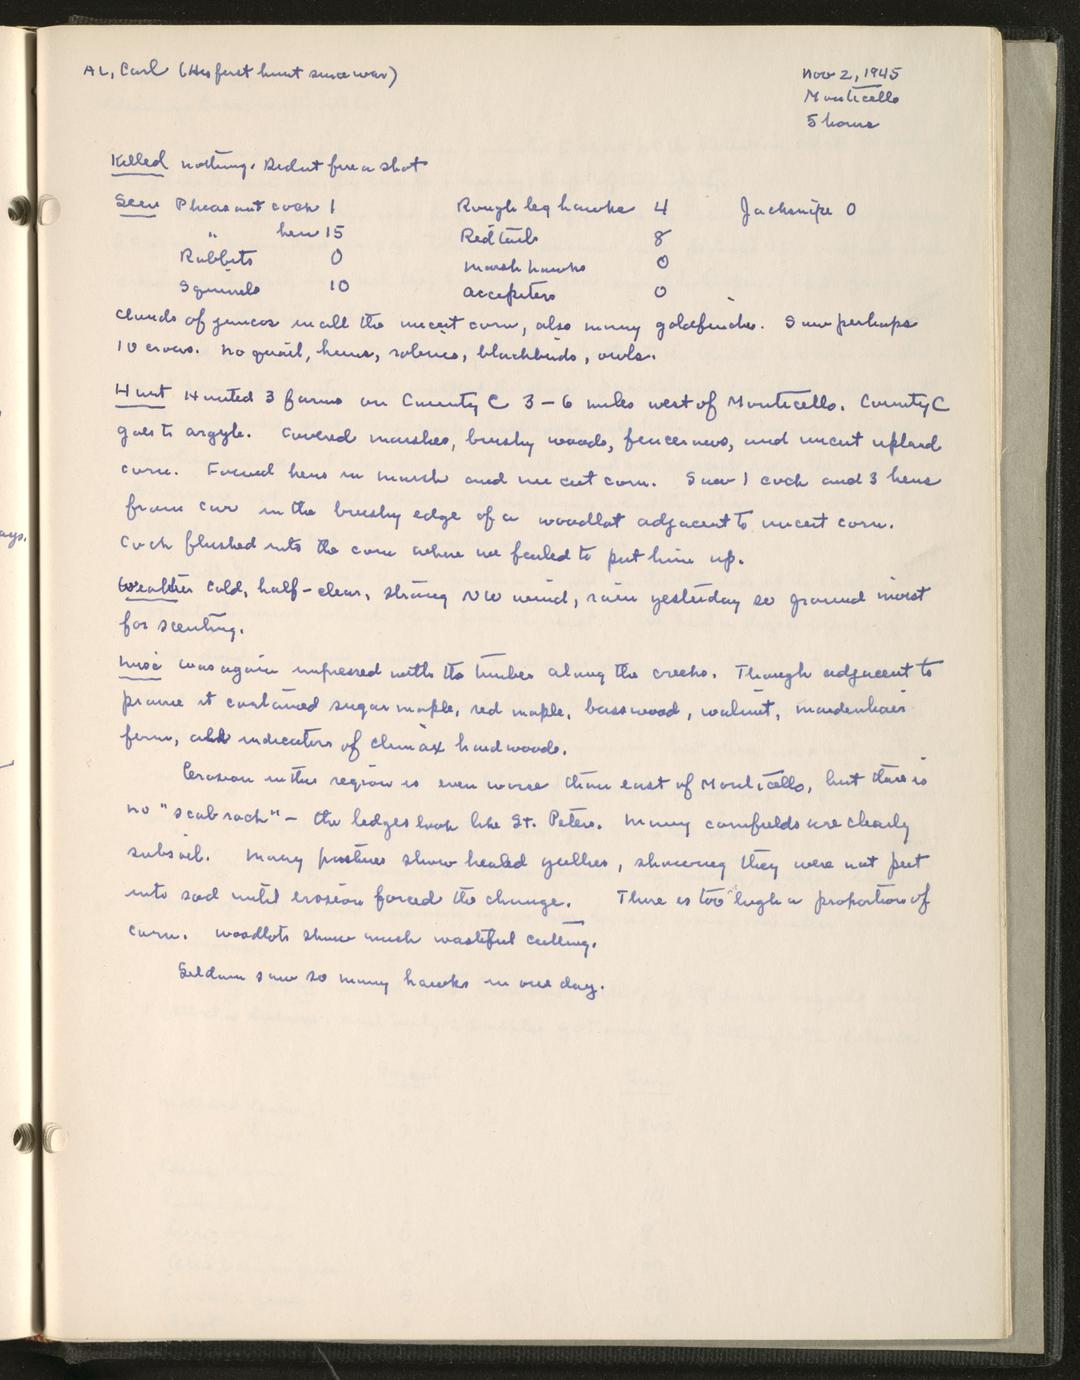 AL, Carl (His first hunt since war)
Nov 2, 1945
Monticello
5 hours
Killed nothing. Didnt fire a shot
Seen Pheasant cock 1 Rough leg hawks 4 Jacksnipe 0
" hen 15 Redtails 8
Rabbits 0 Marsh hawks 0
Squirrels 10 Accipiters 0
Clouds of juncos in all the uncut corn, also many goldfinches. Saw perhaps
10 crows. No quail, huns, robins, blackbirds, owls.
Hunt Hunted 3 farms on County C 3-6 miles west of Monticello. County C
goes to Argyle. Covered marshes, brushy woods, fencerows, and uncut upland
corn. Found hens in marsh and uncut corn. Saw 1 cock and 3 hens
from car in the brushy edge of a woodlot adjacent to uncut corn.
Cock flushed into the corn where we failed to put him up.
Weather Cold, half-clear, strong NW wind, rain yesterday so ground moist
for scenting.
Misc Was again impressed with the timber along the creeks. Though adjacent to
prairie it contained sugar maple, red maple, basswood, walnut, maidenhair
fern, all indicators of climax hardwoods.
Erosion in this region is even worse than east of Monticello, but there is
no "scabrock" - the ledges look like St. Peters. Many cornfields are clearly
subsoil. Many pastures show healed gullies, showing they were not put
into sod until erosion forced the change. There is too high a proportion of
corn. Woodlots show much wasteful cutting.
Seldom saw so many hawks in one day.
ays.